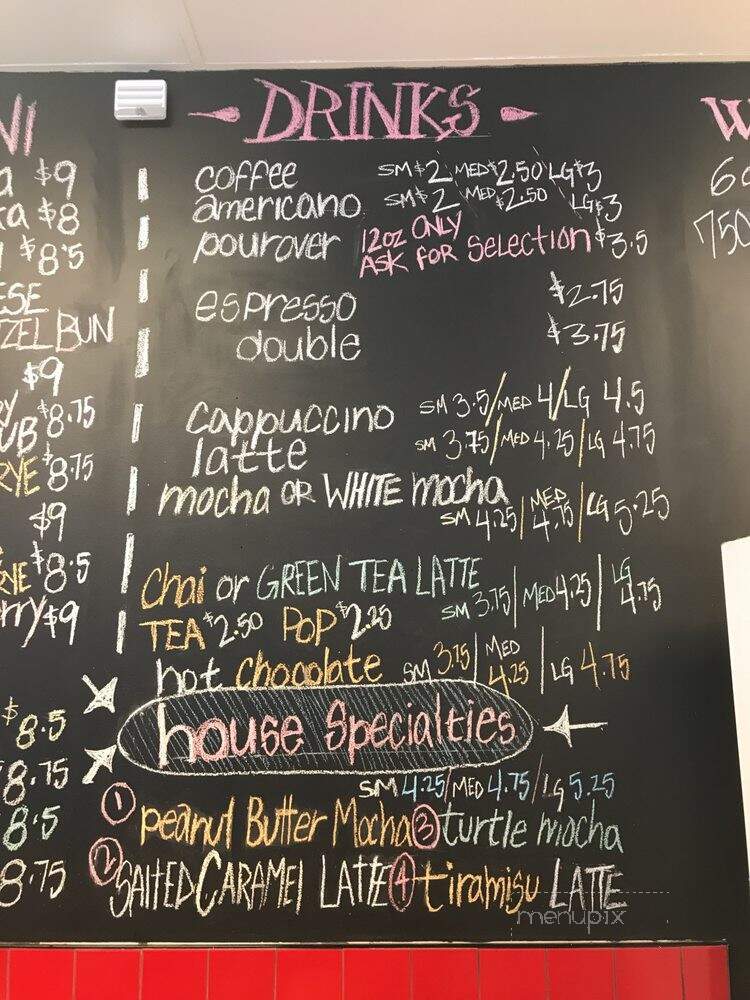 NI
$9
$8
$8.5
ESE
ZEL BUN
$9
$8.75
UB
RYE $8.75
$9
$8.5
RYE
rry $9
$8.5
8.75
8.5
8.75
DRINKS
coffee SM $2 MED $2.50 LG $3
americano SM $2 MED $2.50 LG $3
pourover 12oz ONLY ASK FOR Selection $3.5
espresso $2.75
double $3.75
cappuccino SM 3.5/MED 4/LG 4.5
latte SM 3.75/MED 4.25/LG 4.75
mocha OR WHITE mocha
SM 4.25|MED 4.75|LG 5.25
chai or GREEN TEA LATTE
SM 3.75|MED 4.25|LG 4.75
TEA $2.50 POP $2.25
hot chocolate SM 3.75|MED 4.25|LG 4.75
house Specialties
SM 4.25/MED 4.75/LG 5.25
1 peanut Butter Mocha 3 turtle mocha
2 SALTED CARAMEL LATTE 4 tiramisu LATTE
W
6
750
menupix